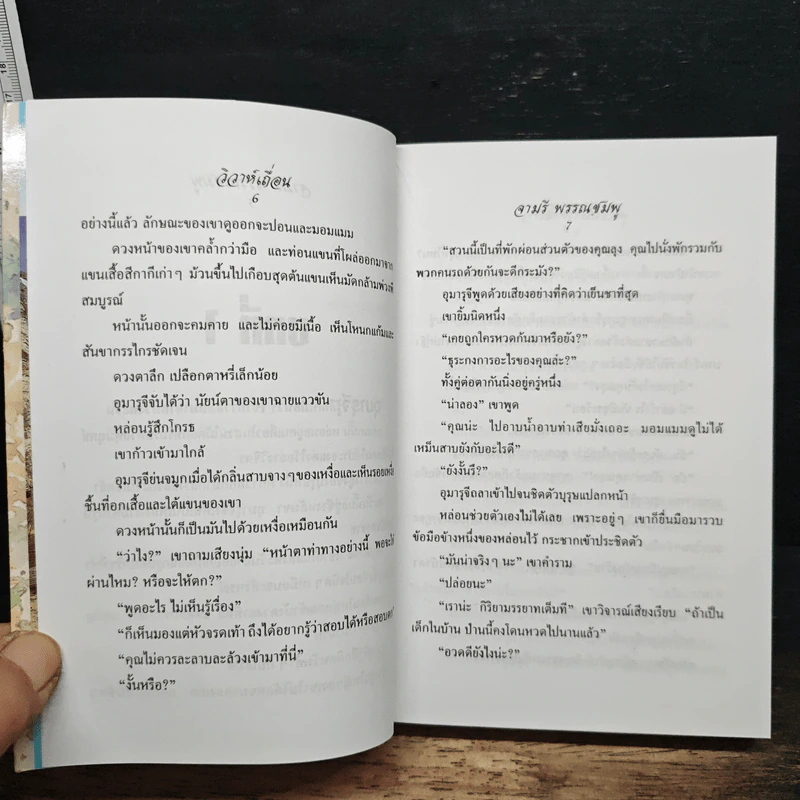 วิวาห์เถื่อน
6
อย่างนี้แล้ว ลักษณะของเขาดูออกจะปอนและมอมแมม
ดวงหน้าของเขาคล้ำกว่ามือ และท่อนแขนที่โผล่ออกมาจาก
แขนเสื้อสีกากีเก่าๆ ม้วนขึ้นไปเกือบสุดต้นแขนเห็นมัดกล้าม
สมบูรณ์
หน้านั้นออกจะคมคาย และไม่ค่อยมีเนื้อ เห็นโหนกแก้มและ
สันขากรรไกรชัดเจน
ดวงตาลึก เปลือกตาหรี่เล็กน้อย
อุมารุจีจับได้ว่า นัยน์ตาของเขาฉายแววขัน
หล่อนรู้สึกโกรธ
เขาก้าวเข้ามาใกล้
อุมารุจีย่นจมูกเมื่อได้กลิ่นสาบจางๆของเหงื่อและเห็นรอยเหงื่อ
ชื้นที่อกเสื้อและใต้แขนของเขา
ดวงหน้านั้นก็เป็นมันไปด้วยเหงื่อเหมือนกัน
“ว่าไง?” เขาถามเสียงนุ่ม “หน้าตาท่าทางอย่างนี้ พอจะให้
ผ่านไหม? หรือจะให้ตก?”
“พูดอะไร ไม่เห็นรู้เรื่อง”
“ก็เห็นมองแต่หัวจรดเท้า ถึงได้อยากรู้ว่าสอบได้หรือสอบตก”
“คุณไม่ควรละลาบละล้วงเข้ามาที่นี่”
“งั้นหรือ?”
จามรี พรรณชมพู
7
“สวนนี้เป็นที่พักผ่อนส่วนตัวของคุณลุง คุณไปนั่งพักรวมกับ
พวกคนรถด้วยกันจะดีกระมัง?”
อุมารุจีพูดด้วยเสียงอย่างที่คิดว่าเย็นชาที่สุด
เขายิ้มนิดหนึ่ง
“เคยถูกใครหวดก้นมาหรือยัง?”
“ธุระกงการอะไรของคุณล่ะ?”
ทั้งคู่ต่อตากันนิ่งอยู่ครู่หนึ่ง
“น่าลอง” เขาพูด
“คุณน่ะ ไปอาบน้ำอาบท่าเสียมั่งเถอะ มอมแมมดูไม่ได้
เหม็นสาบยังกับอะไรดี”
“ยังงั้นรึ?”
อุมารุจีถลาเข้าไปจนชิดตัวบุรุษแปลกหน้า
หล่อนช่วยตัวเองไม่ได้เลย เพราะอยู่ๆ เขาก็ยื่นมือมารวบ
ข้อมือข้างหนึ่งของหล่อนไว้ กระชากเข้าประชิดตัว
“มันน่าจริงๆ นะ” เขาคำราม
“ปล่อยนะ”
“เราน่ะ กิริยามรรยาทเต็มที” เขาวิจารณ์เสียงเรียบ “ถ้าเป็น
เด็กในบ้าน ป่านนี้คงโดนหวดไปนานแล้ว”
“อวดดียังไงน่ะ?”